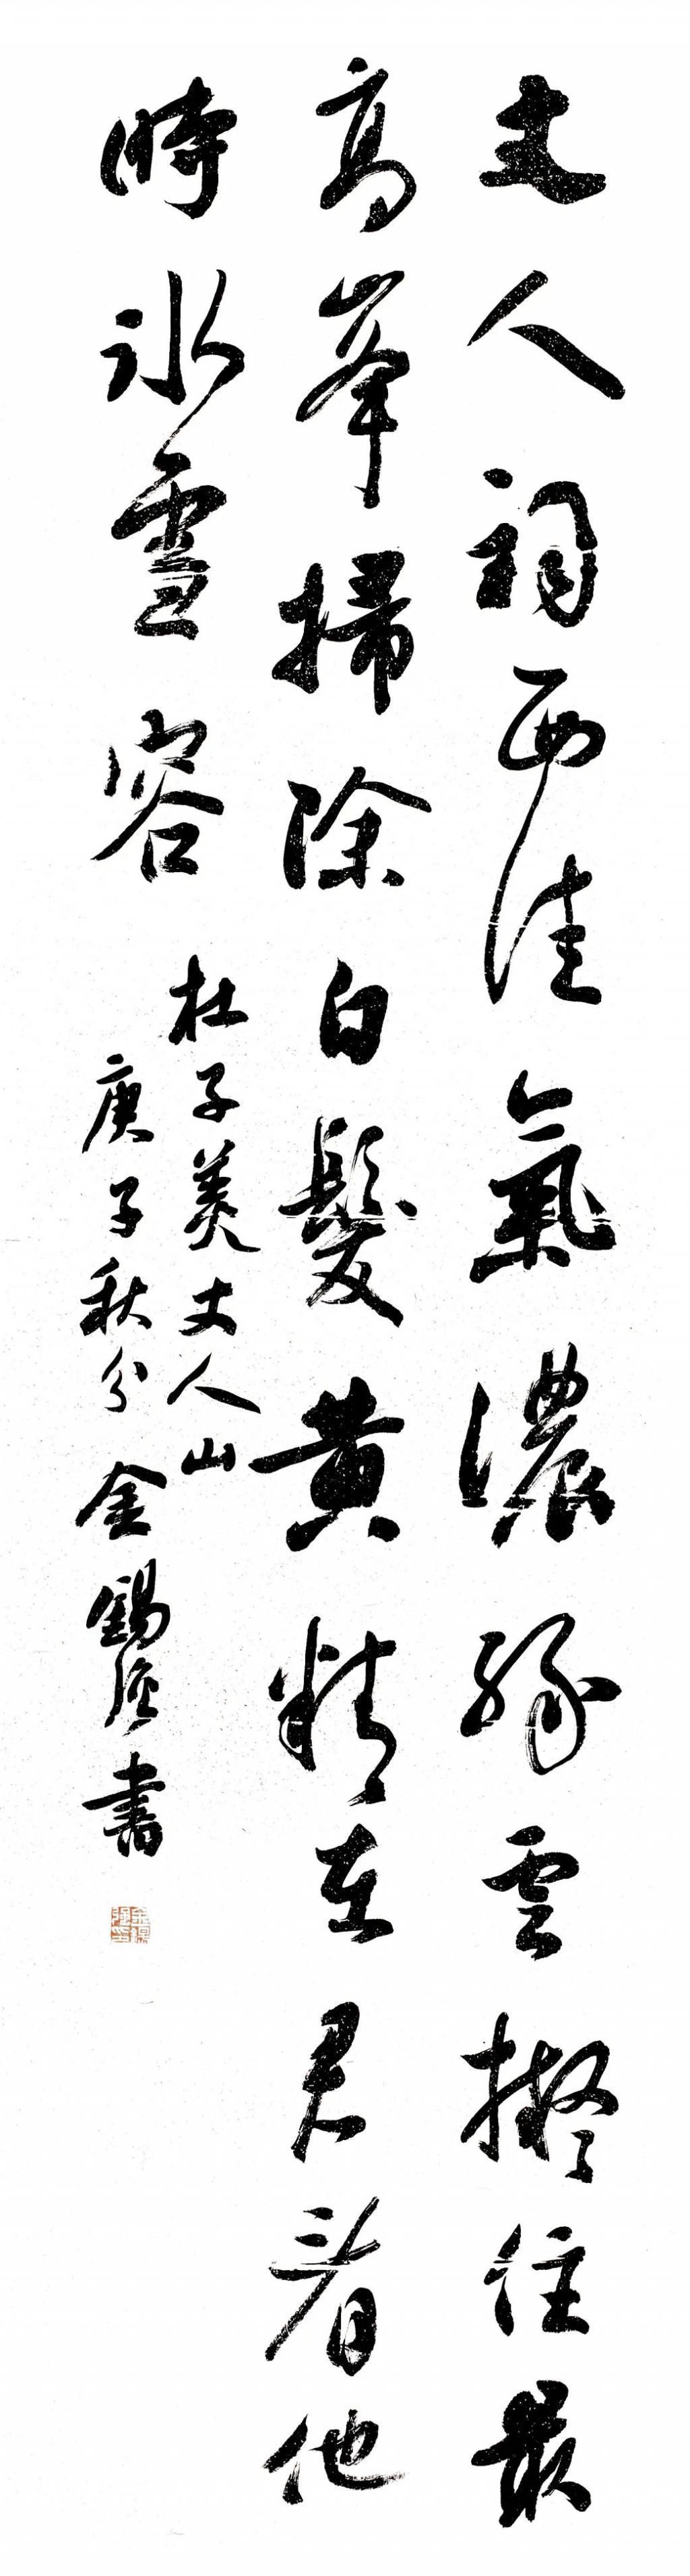 丈人祠西佳氣濃緣雲擬住最
高峯掃除白髮黃精在君看他
時冰雪容
杜子美丈人山
庚子秋分 金錫强書